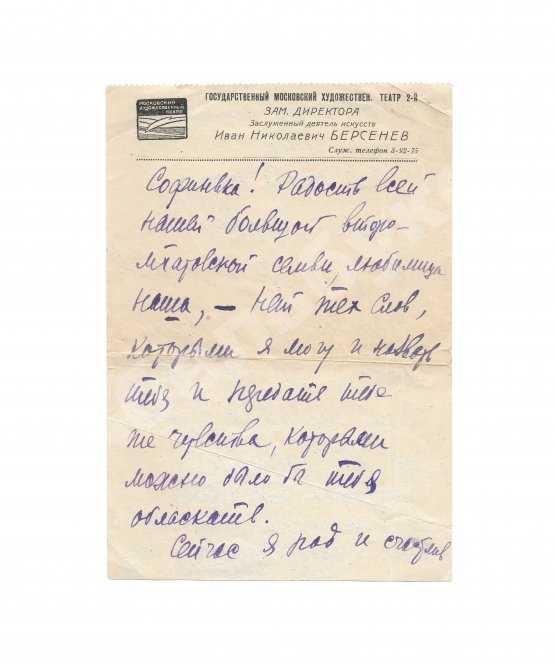 МОСКОВСКИЙ
ХУДОЖЕСТВЕННЫЙ
ТЕАТР
ГОСУДАРСТВЕННЫЙ МОСКОВСКИЙ ХУДОЖЕСТВЕН. ТЕАТР 2-й
ЗАМ. ДИРЕКТОРА
Заслуженный деятель искусств
Иван Николаевич БЕРСЕНЕВ
Служ. телефон 3-92-75
Софинька! Радость всей
нашей большой второ-
мхатовской семьи, любимица
наша, – нет тех слов,
которыми я могу и назвать
тебя и передать те
же чувства, которыми
можно было бы тебя
обласкать.
Сейчас я рад и счастлив